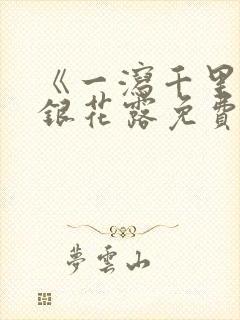 《一瀉千里
銀花露免費
夢雲山